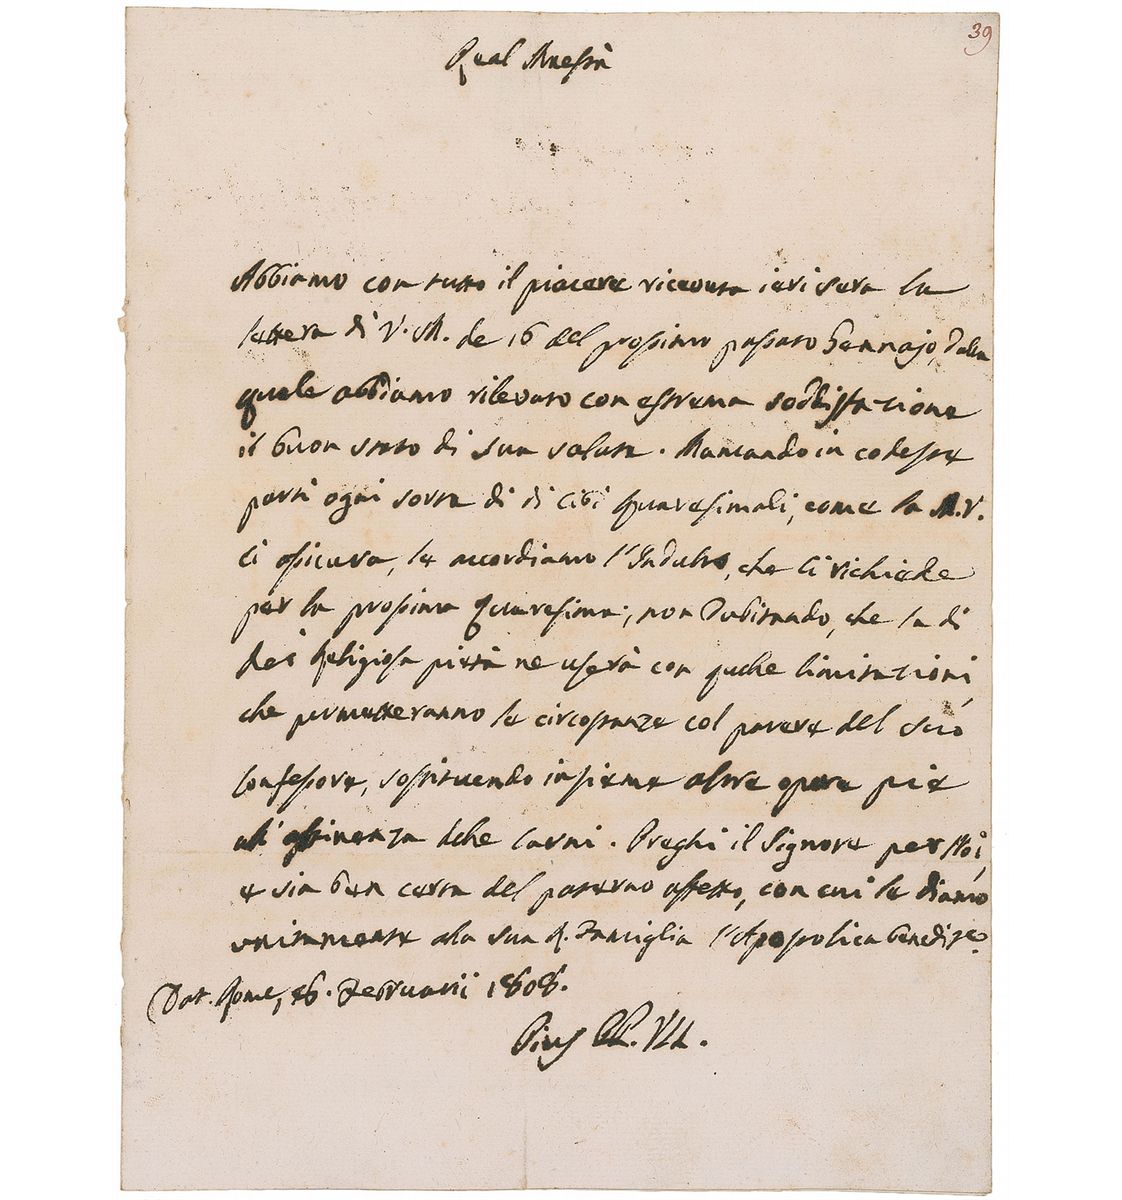 39
Real Maestà
Abbiamo con tutto il piacere ricevuta ieri sera la
lettera di V. M. de 16 del prossimo passato Gennajo, dalla
quale abbiamo rilevato con estrema soddisfazione
il buon stato di sua salute. Mancando in codeste
parti ogni sorta di di cibi quaresimali, come la M. V.
ci assicura, le accordiamo l'Indulto, che ci richiede
per la prossima Quaresima; non dubitando, che la di
Lei Religiosa pietà ne userà con quelle limitazioni,
che permetteranno le circostanze col parere del suo
Confessore, sostituendo insieme altre opere pie
all'astinenza delle carni. Preghi il Signore per Noi,
e sia ben certa del paterno affetto, con cui le diamo
unitamente alla sua R. Famiglia l'Apostolica Benedize.
Dat. Rome, Februarii 1808.
Pius PP. VII.